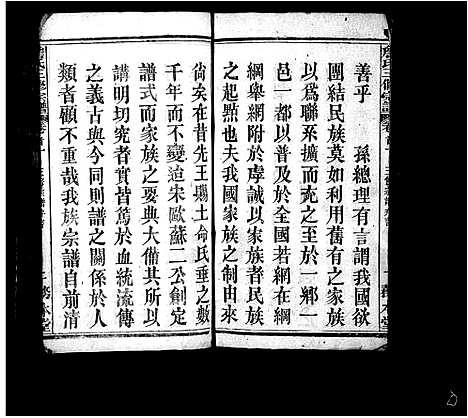 善乎　孫總理有言謂我國欲
團結民族莫如利用舊有之家族
以爲聯系擴而充之至於一鄉一
邑一都以及於全國若網在綱
綱舉網附於虖誠以家族者民族
之起點也夫我國家族之制由來
尙矣在昔先王錫土命氏垂之數
千年而不變迨宋歐蘇二公創定
譜式而家族之大備其所以
講明切究者皆篤於血統流傳
之義古與今同則譜之關係於人
類者顧不重哉我族宗譜自前清